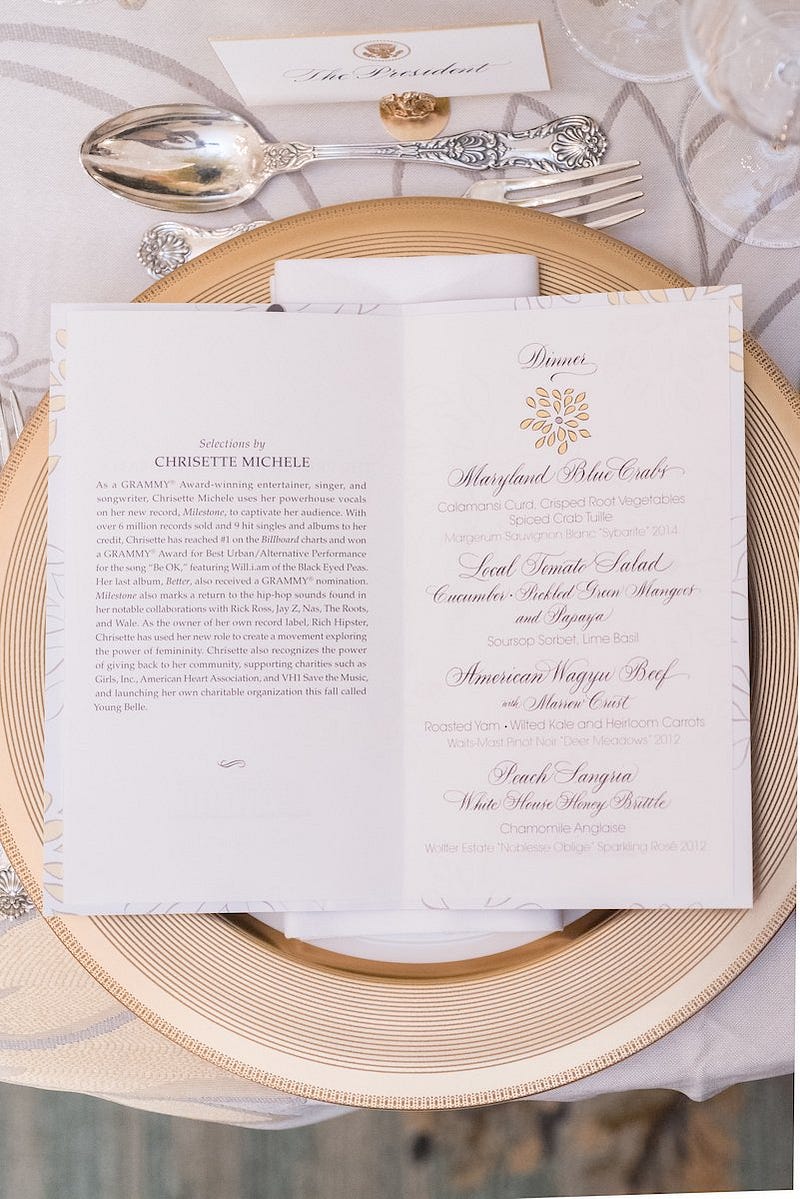 The President
Selections by
CHRISETTE MICHELE
As a GRAMMY® Award-winning entertainer, singer, and
songwriter, Chrisette Michele uses her powerhouse vocals
on her new record, Milestone, to captivate her audience. With
over 6 million records sold and 9 hit singles and albums to her
credit, Chrisette has reached #1 on the Billboard charts and won
a GRAMMY® Award for Best Urban/Alternative Performance
for the song "Be OK," featuring Will.i.am of the Black Eyed Peas.
Her last album, Better, also received a GRAMMY® nomination.
Milestone also marks a return to the hip-hop sounds found in
her notable collaborations with Rick Ross, Jay Z, Nas, The Roots,
and Wale. As the owner of her own record label, Rich Hipster,
Chrisette has used her new role to create a movement exploring
the power of femininity. Chrisette also recognizes the power
of giving back to her community, supporting charities such as
Girls, Inc., American Heart Association, and VH1 Save the Music,
and launching her own charitable organization this fall called
Young Belle.
Dinner
Maryland Blue Crabs
Calamansi Curd, Crisped Root Vegetables
Spiced Crab Tuille
Margerum Sauvignon Blanc "Sybarite" 2014
Local Tomato Salad
Cucumber • Pickled Green Mangoes
and Papaya
Soursop Sorbet, Lime Basil
American Wagyu Beef
with Marrow Crust
Roasted Yam • Wilted Kale and Heirloom Carrots
Waits-Mast Pinot Noir "Deer Meadows" 2012
Peach Sangria
White House Honey Brittle
Chamomile Anglaise
Wolffer Estate "Noblesse Oblige" Sparkling Rosé 2012